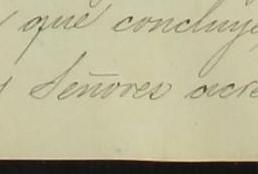 que concluye
Señores acre